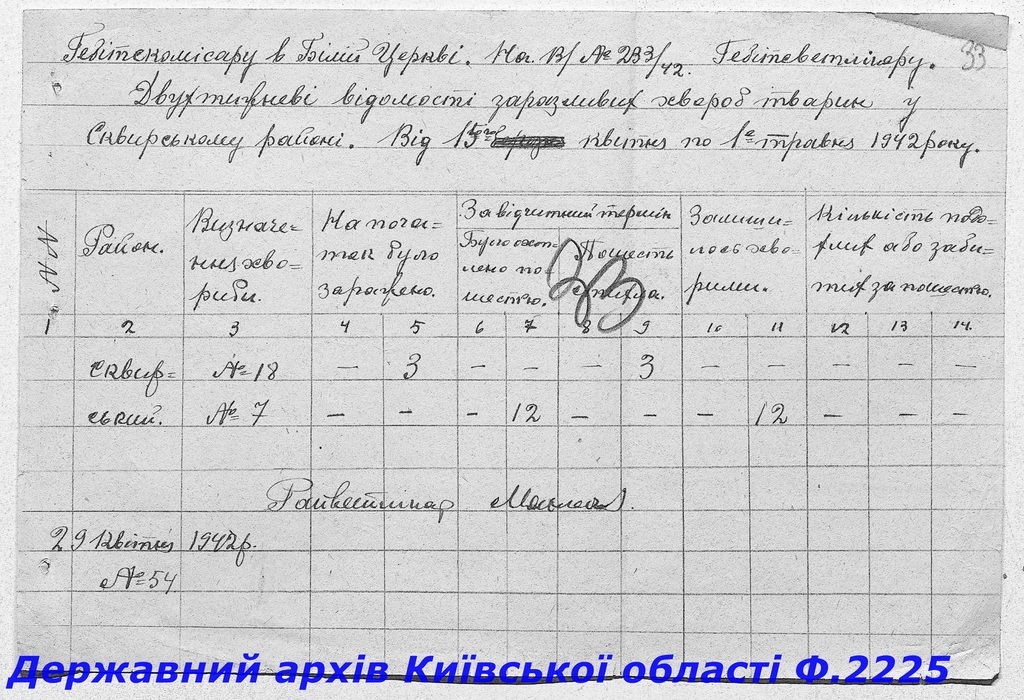 Гебітскомісару в Білій Церкві. На. В/ № 233/42. Гебітсветлікару. 33
Двухтижневі відомості заразливих хвороб тварин у
Сквирському районі. Від 15го квітня по 1е травня 1942 року.
№№ Район. Визначення хвороби. На початок було заражено. За відчитний термін Залишилось хворими. Кількість подохлих або забитих за пошестю.
Було охоплено пошестю. Пошесть
33
1 2 3 4 5 6 7 8 9 10 11 12 13 14.
Сквир= № 18 – 3 – – – 3 – – – – –
ський. № 7 – – – 12 – – – 12 – – –
Райветлікар
29 Квітня 1942 р.
№ 54.
Державний архів Київської області Ф.2225